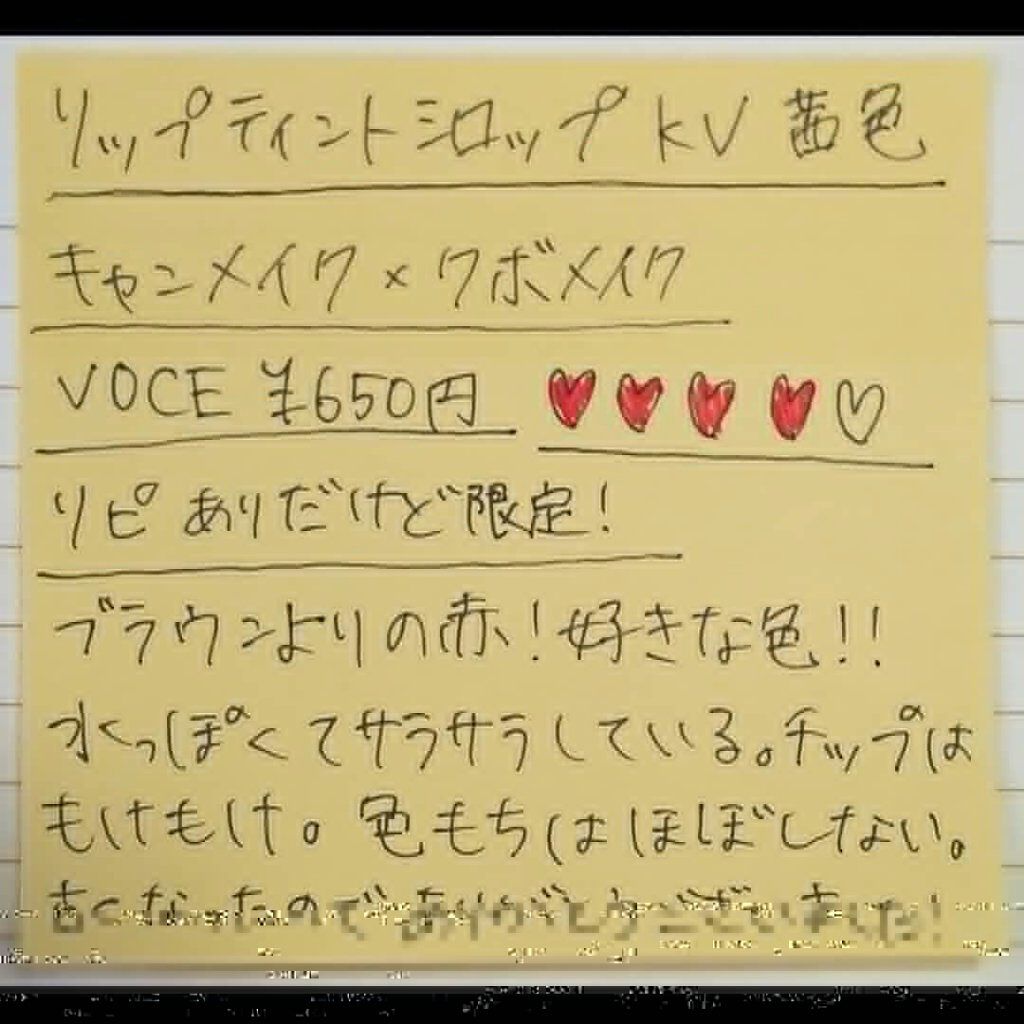 リップティントシロップ KV 茜色
キャンメイク×クボメイク
VOCE ¥650円 ♥♥♥♥♡
リピありだけど限定!
ブラウンよりの赤!好きな色!!
水っぽくてサラサラしている。チップは
もけもけ。色もちはほぼしない。
古くなったのでありがとうございました!